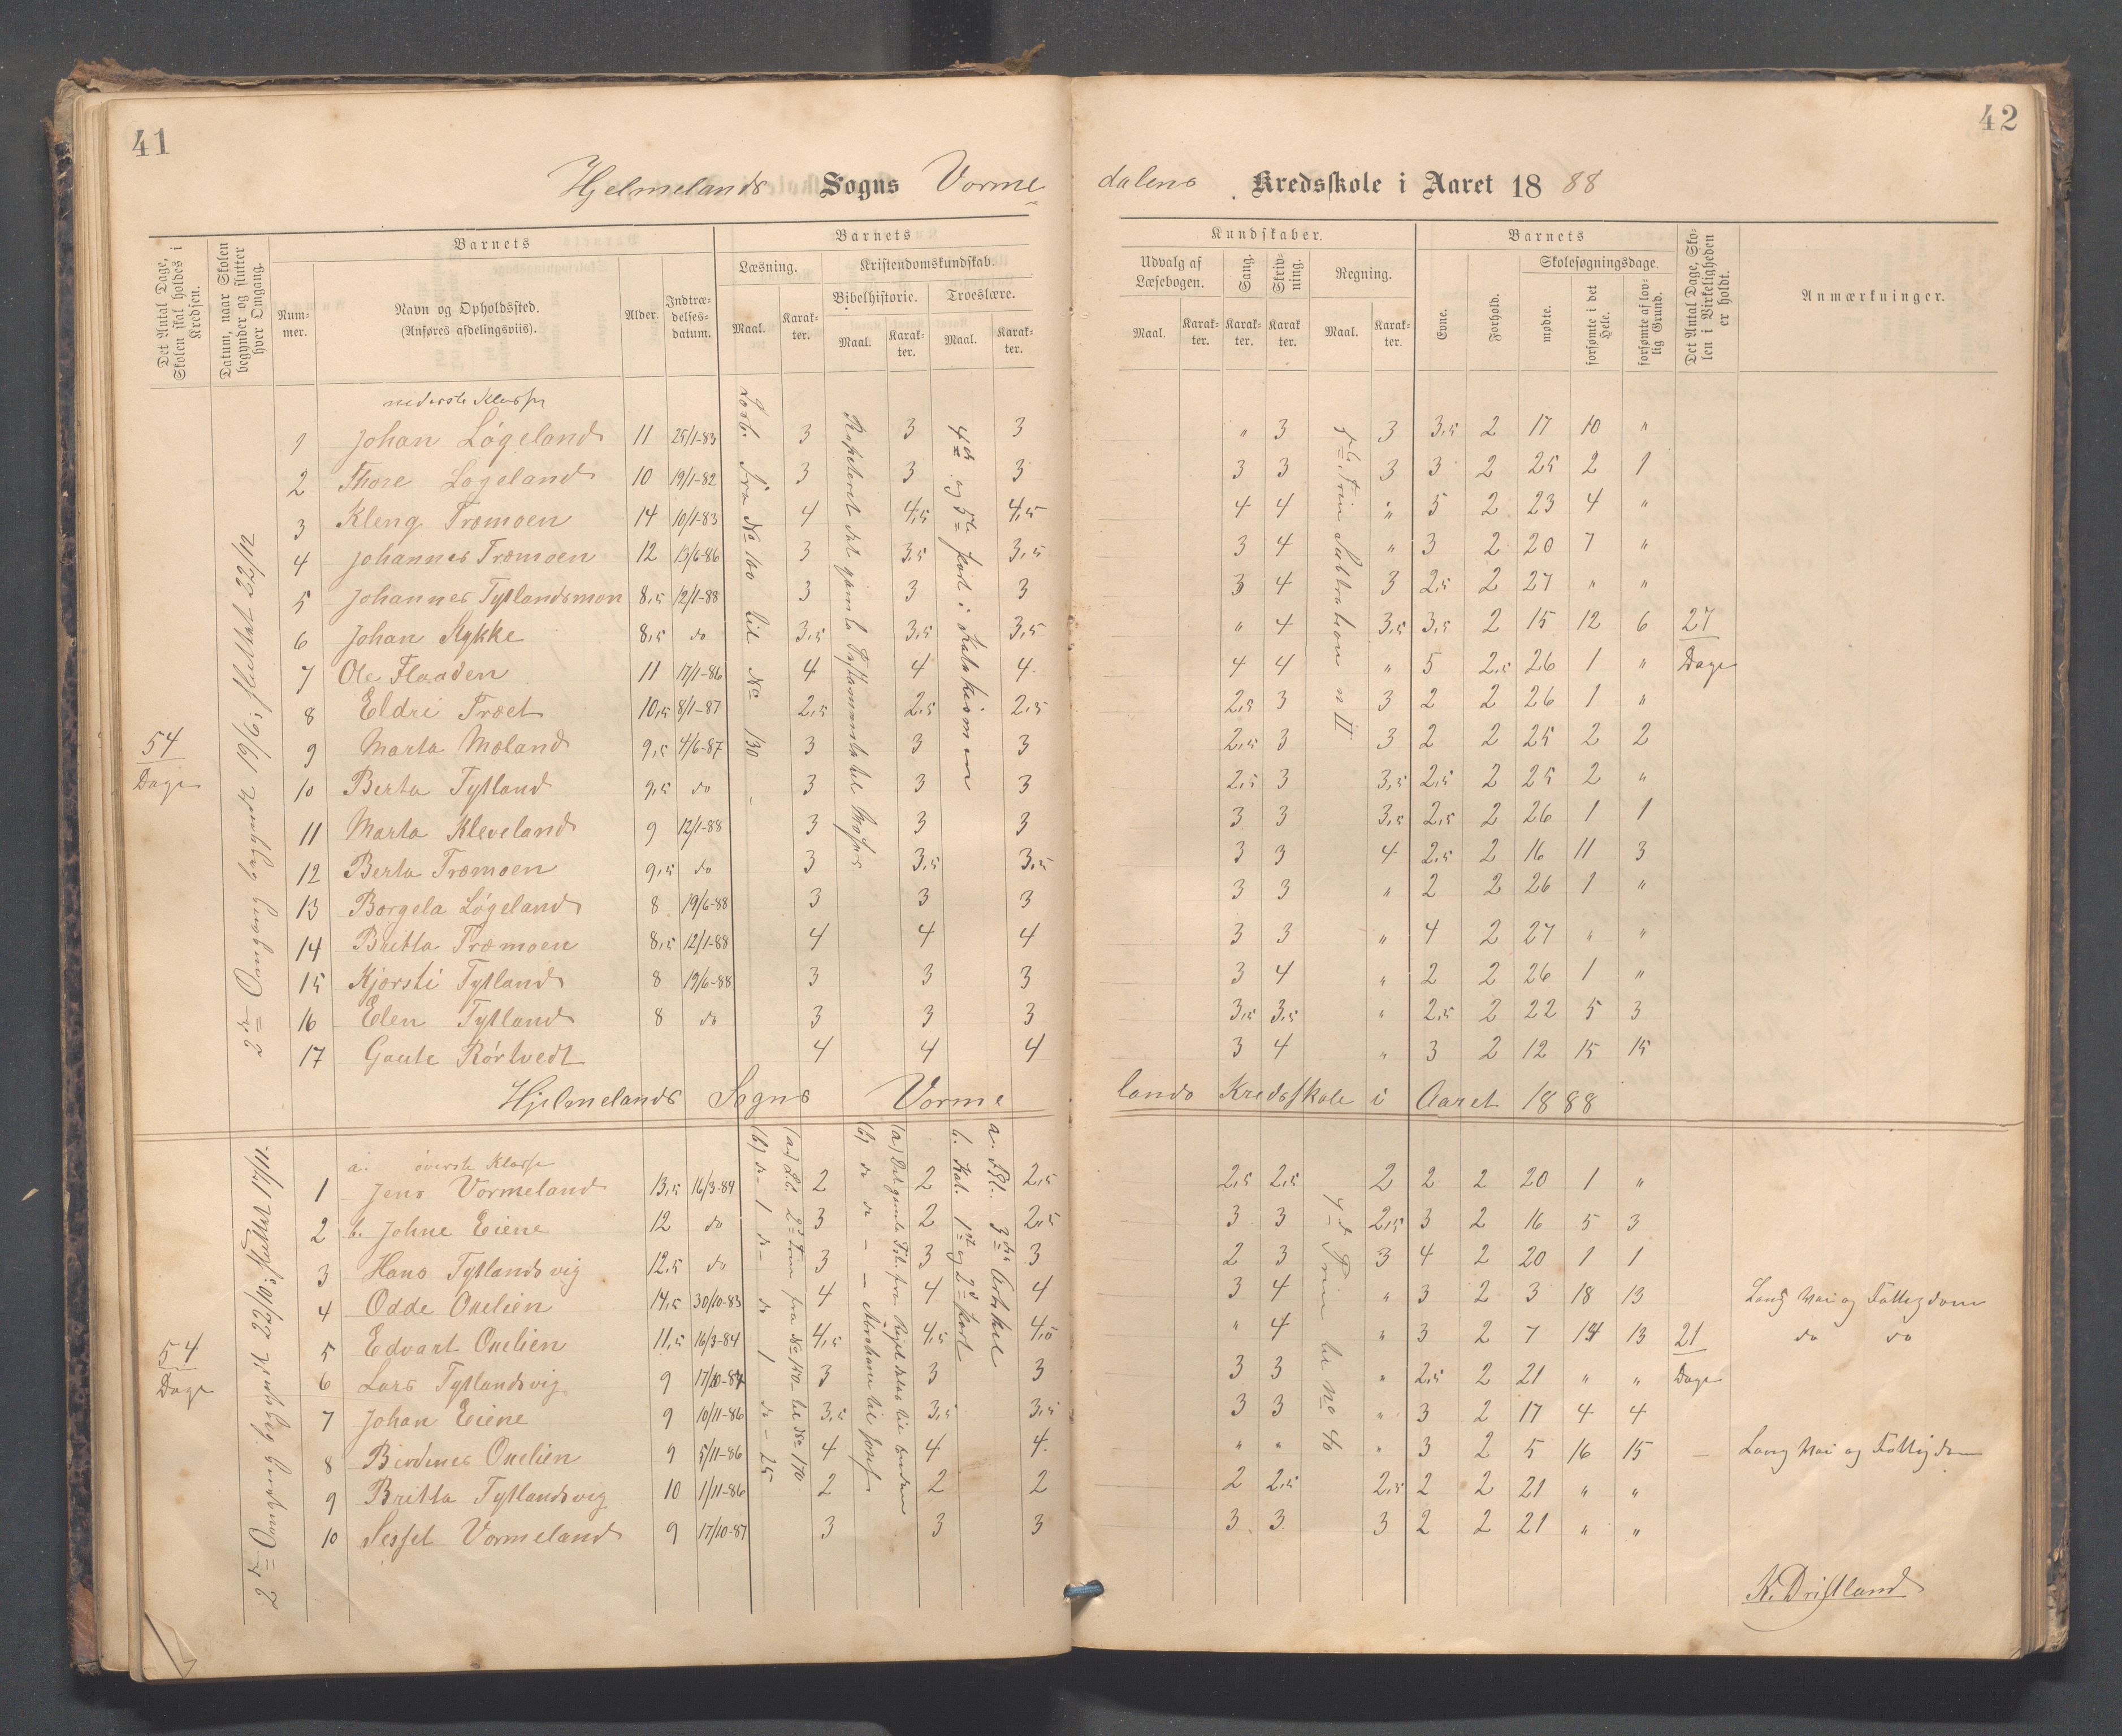 41
42
Hjelmelands Sogns Vorme
dalens Kredsskole i Aaret 1888
Det Antal Dage, Skolen skal holdes i Kredsen.
Datum, naar Skolen begynder og slutter hver Omgang.
Barnets
Barnets
Nummer.
Navn og Opholdssted.
(Anføres afdelingsviis).
Alder.
Indtrædelses-datum.
Læsning.
Kristendomskundskab.
Bibelhistorie.
Troeslære.
Maal. Karakter. Maal. Karakter. Maal. Karakter.
Kundskaber.
Barnets
Udvalg af Læsebogen.
Sang.
Skrivning.
Regning.
Evne.
Forhold.
Skolesøgningsdage.
mødte.
forsømte i det Hele.
forsømte af lovlig Grund.
Det Antal Dage, Skolen i Virkeligheden er holdt.
Anmærkninger.
Maal. Karakter. Karakter. Karakter Maal. Karakter.
54
Dage
2den Omgang begyndt 19/6; sluttet 22/12
nederste Klasse
Læsb. fra No 100 til No 130
4de og 5te Part i Katekismen
5te Trin Subtraktion n II
1 Johan Løgeland 11 25/1-83 3 3 3 " 3 3 3,5 2 17 10 "
2 Thore Løgeland 10 19/1-82 3 3 3 3 3 3 3 2 25 2 1
3 Kleng Træmoen 14 10/1-83 4 4,5 4,5 4 4 " 5 2 23 4 "
4 Johannes Træmoen 12 13/6-86 3 3,5 3,5 3 4 " 3 2 20 7 "
5 Johannes Tytlandsmon 8,5 12/1-88 3 3 3 3 4 3 2,5 2 27 " "
6 Johan Stykke 8,5 do 3,5 3,5 3,5 " 4 3,5 3,5 2 15 12 6 27
7 Ole Flaaden 11 17/1-86 4 4 4 4 4 " 5 2,5 26 1 " Dage
8 Eldri Træet 10,5 8/1-87 2,5 2,5 2,5 2,5 3 3 2 2 26 1 "
9 Marta Mæland 9,5 4/6-87 3 3 3 2,5 3 3 2 2 25 2 2
10 Berta Tytland 9,5 do 3 3 3 2,5 3 3,5 2,5 2 25 2 "
11 Marta Kleveland 9 12/1-88 3 3 3 3 3 3,5 2,5 2 26 1 1
12 Berta Træmoen 9,5 do 3 3,5 3,5 3 3 4 2,5 2 16 11 3
13 Borgela Løgeland 8 19/6-88 3 3 3 3 3 " 2 2 26 1 "
14 Britta Træmoen 8,5 12/1-88 4 4 4 3 3 " 4 2 27 " "
15 Kjorsti Tytland 8 19/6-88 3 3 3 3 4 " 2 2 26 1 "
16 Elen Tytland 8 do 3 3 3 3,5 3,5 " 2,5 2 22 5 3
17 Gaute Rørtvedt 4 4 4 3 4 " 3 2 12 15 15
Hjelmelands Sogns Vorme
lands Kredsskole i Aaret 1888
54
Dage
2den Omgang begyndt 22/10; sluttet 17/11.
a. øverste Klasse
(a) Lb. 2d Trin fra No 150 til No 170
(b) do 1 do do 1 do - 25
a. Fkl. 3die Artikel
b. Kat. 1st og 2d Part
4de Trin til No 40
1 Jens Vormeland 13,5 16/3-84 2 2 2,5 2,5 2,5 2 2 2 20 1 "
2 b. Johne Eiene 12 do 3 2 2,5 3 3 2,5 3 2 16 5 3
3 Hans Tytlandsvig 12,5 do 3 3 3 2 3 3 4 2 20 1 1
4 Odde Onelien 14,5 30/10-83 4 4 4 3 4 " 3 2 3 18 13 Lang Vei og Fattigdom
5 Edvart Onelien 11,5 16/3-84 4,5 4,5 4,5 " 4 " 3 2 7 14 13 21 do do
6 Lars Tytlandsvig 9 17/10-87 3 3 3 3 3 " 2,5 2 21 " " Dage
7 Johan Eiene 9 10/11-86 3,5 3,5 3,5 3 3 " 3 2 17 4 4
8 Berdines Onelien 9 5/11-86 4 4 4 " " " 3 2 5 16 15 Lang Vei og Fattigdom
9 Britta Tytlandsvig 10 1/11-86 2 2 2 2 2,5 2,5 2 2 21 " "
10 Sessel Vormeland 9 17/10-87 3 3 3 3 3 3 2 2 21 " "
K. Driftland